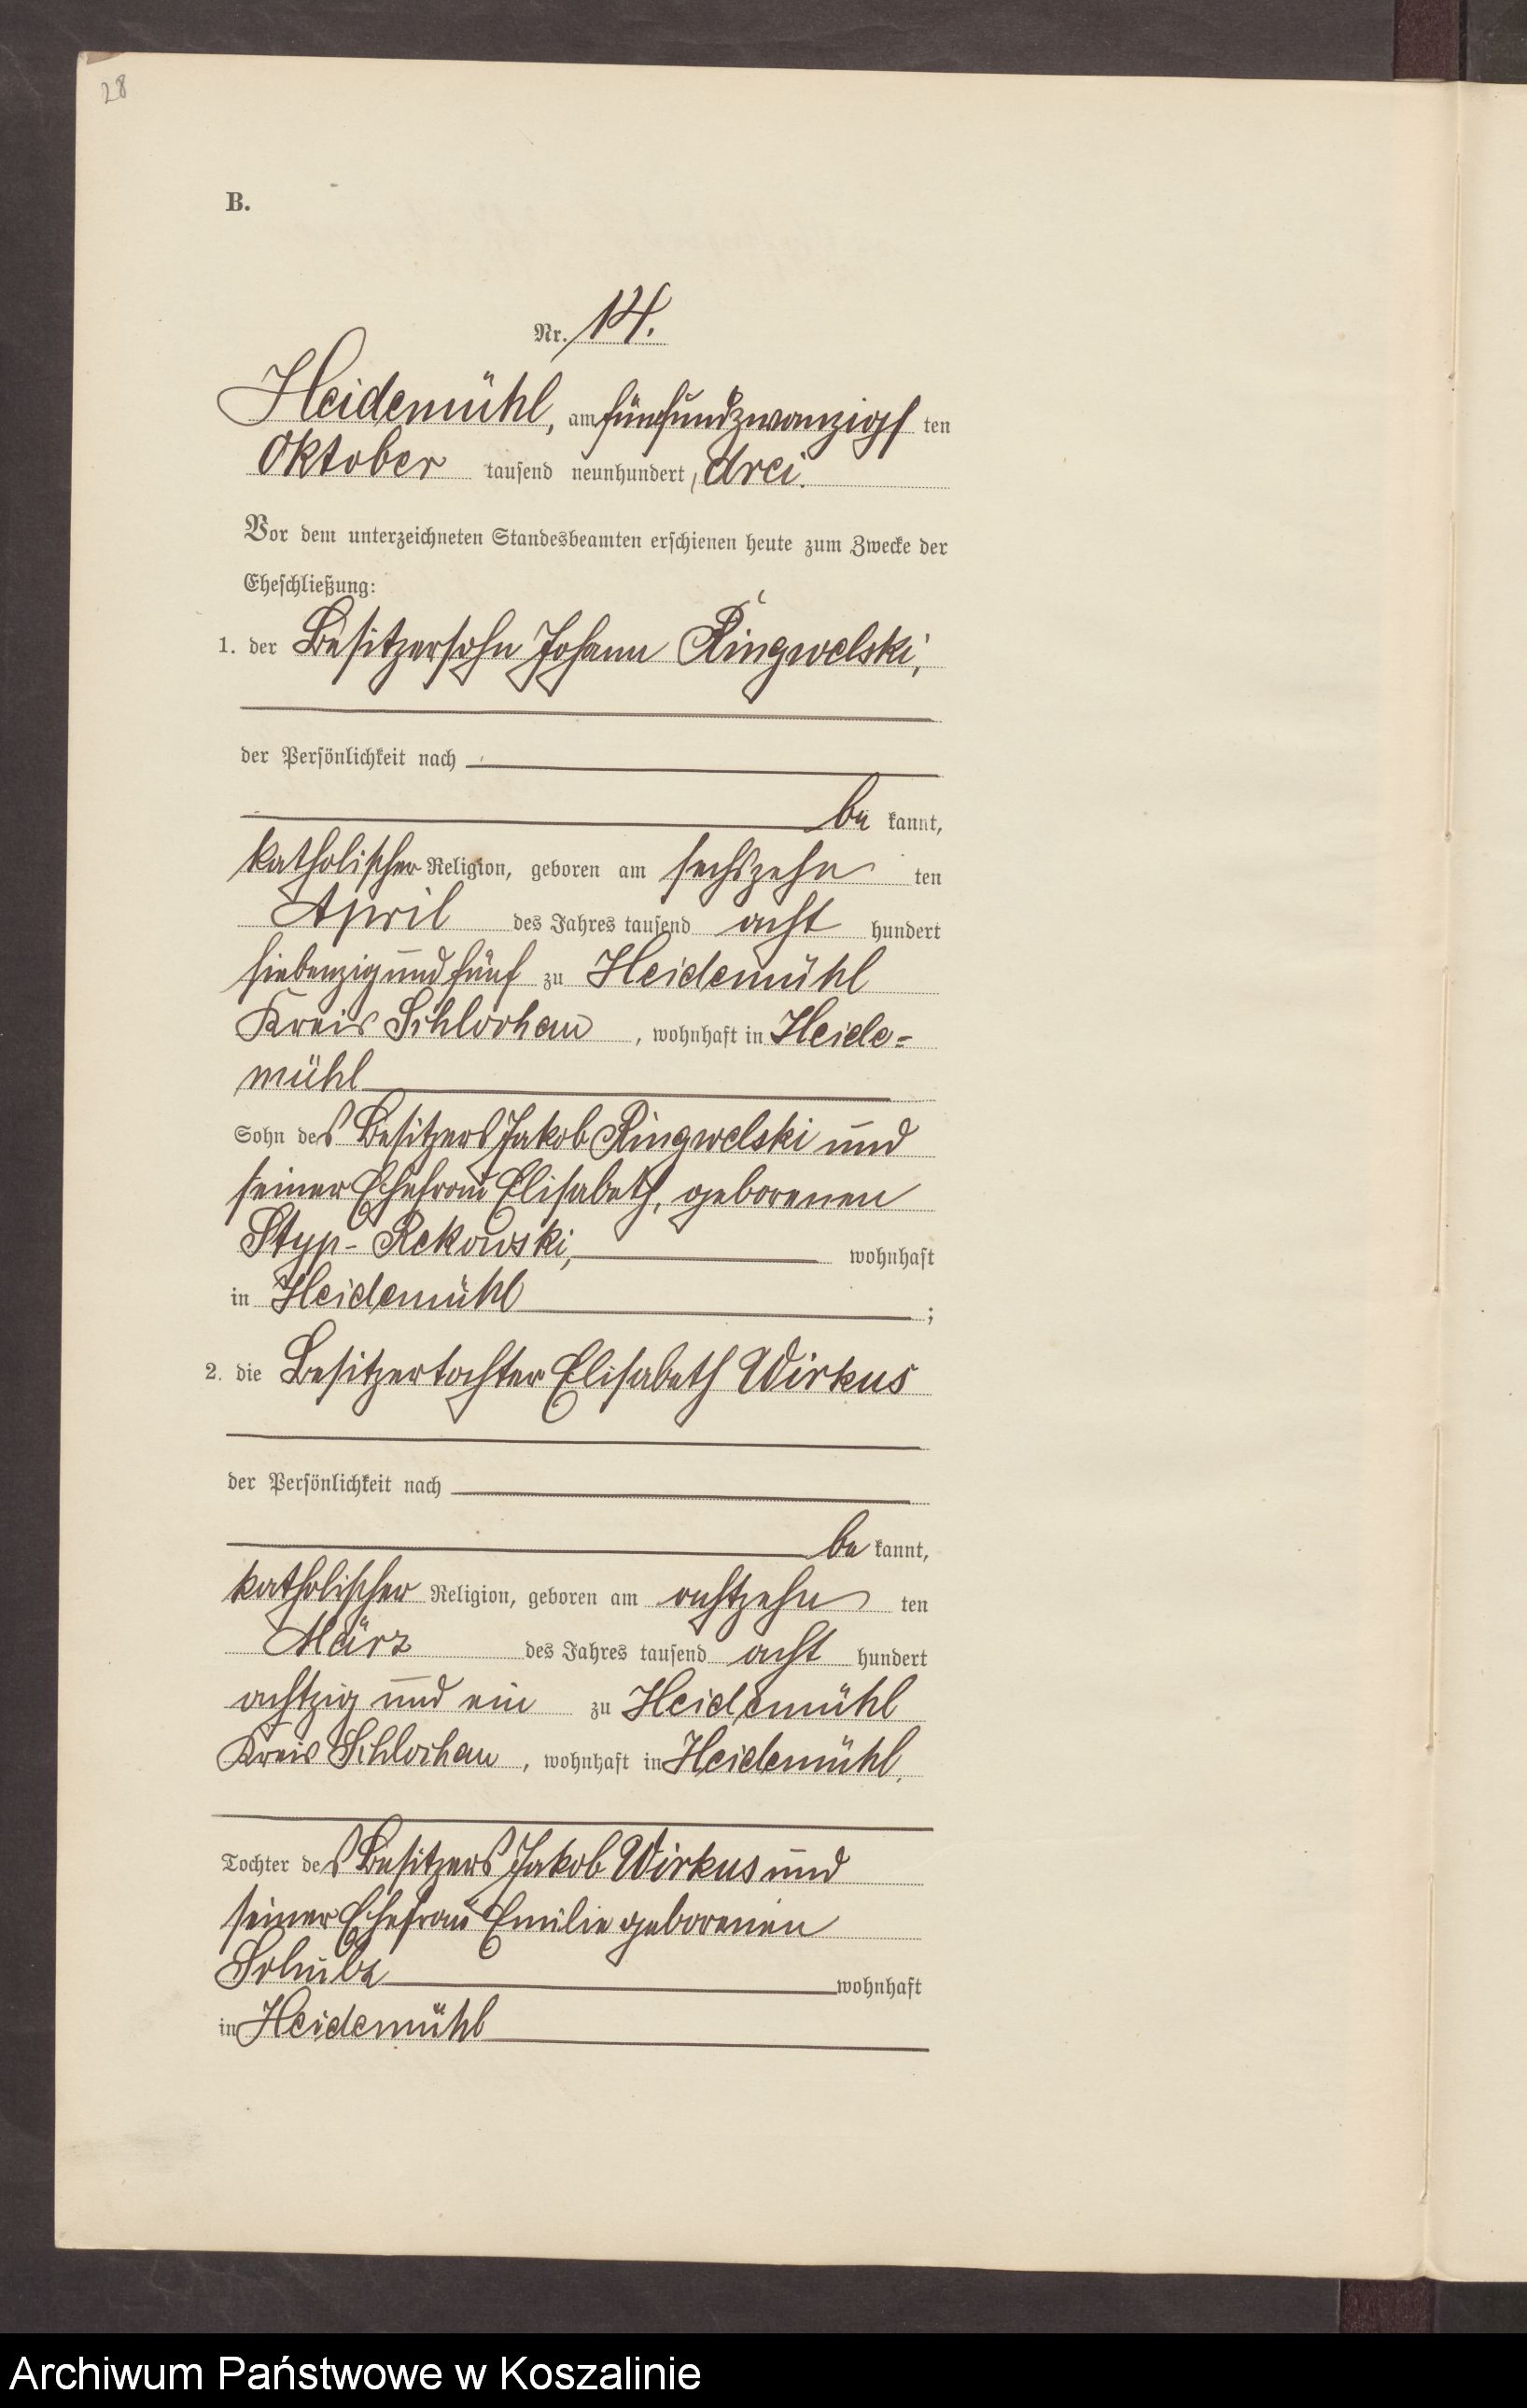 28
B.
Nr. 14.
Heidemühl, am fünfundzwanzigs ten
Oktober tausend neunhundert, drei.
Vor dem unterzeichneten Standesbeamten erschienen heute zum Zwecke der
Eheschließung:
1. der Besitzersohn Johann Ringwelski,
der Persönlichkeit nach
be kannt,
katholischer Religion, geboren am sechszehn ten
April des Jahres tausend acht hundert
siebenzig und fünf zu Heidemühl
Kreis Schlochau, wohnhaft in Heide=
mühl
Sohn des Besitzers Jakob Ringwelski und
seiner Ehefrau Elisabeth, geborenen
Styp-Rekowski, wohnhaft
in Heidemühl ;
2. die Besitzertochter Elisabeth Wirkus
der Persönlichkeit nach
be kannt,
katholischer Religion, geboren am achtzehn ten
März des Jahres tausend acht hundert
achtzig und ein zu Heidemühl
Kreis Schlochau, wohnhaft in Heidemühl,
Tochter des Besitzers Jakob Wirkus und
seiner Ehefrau Emilie geborenen
wohnhaft
in Heidemühl
Archiwum Państwowe w Koszalinie